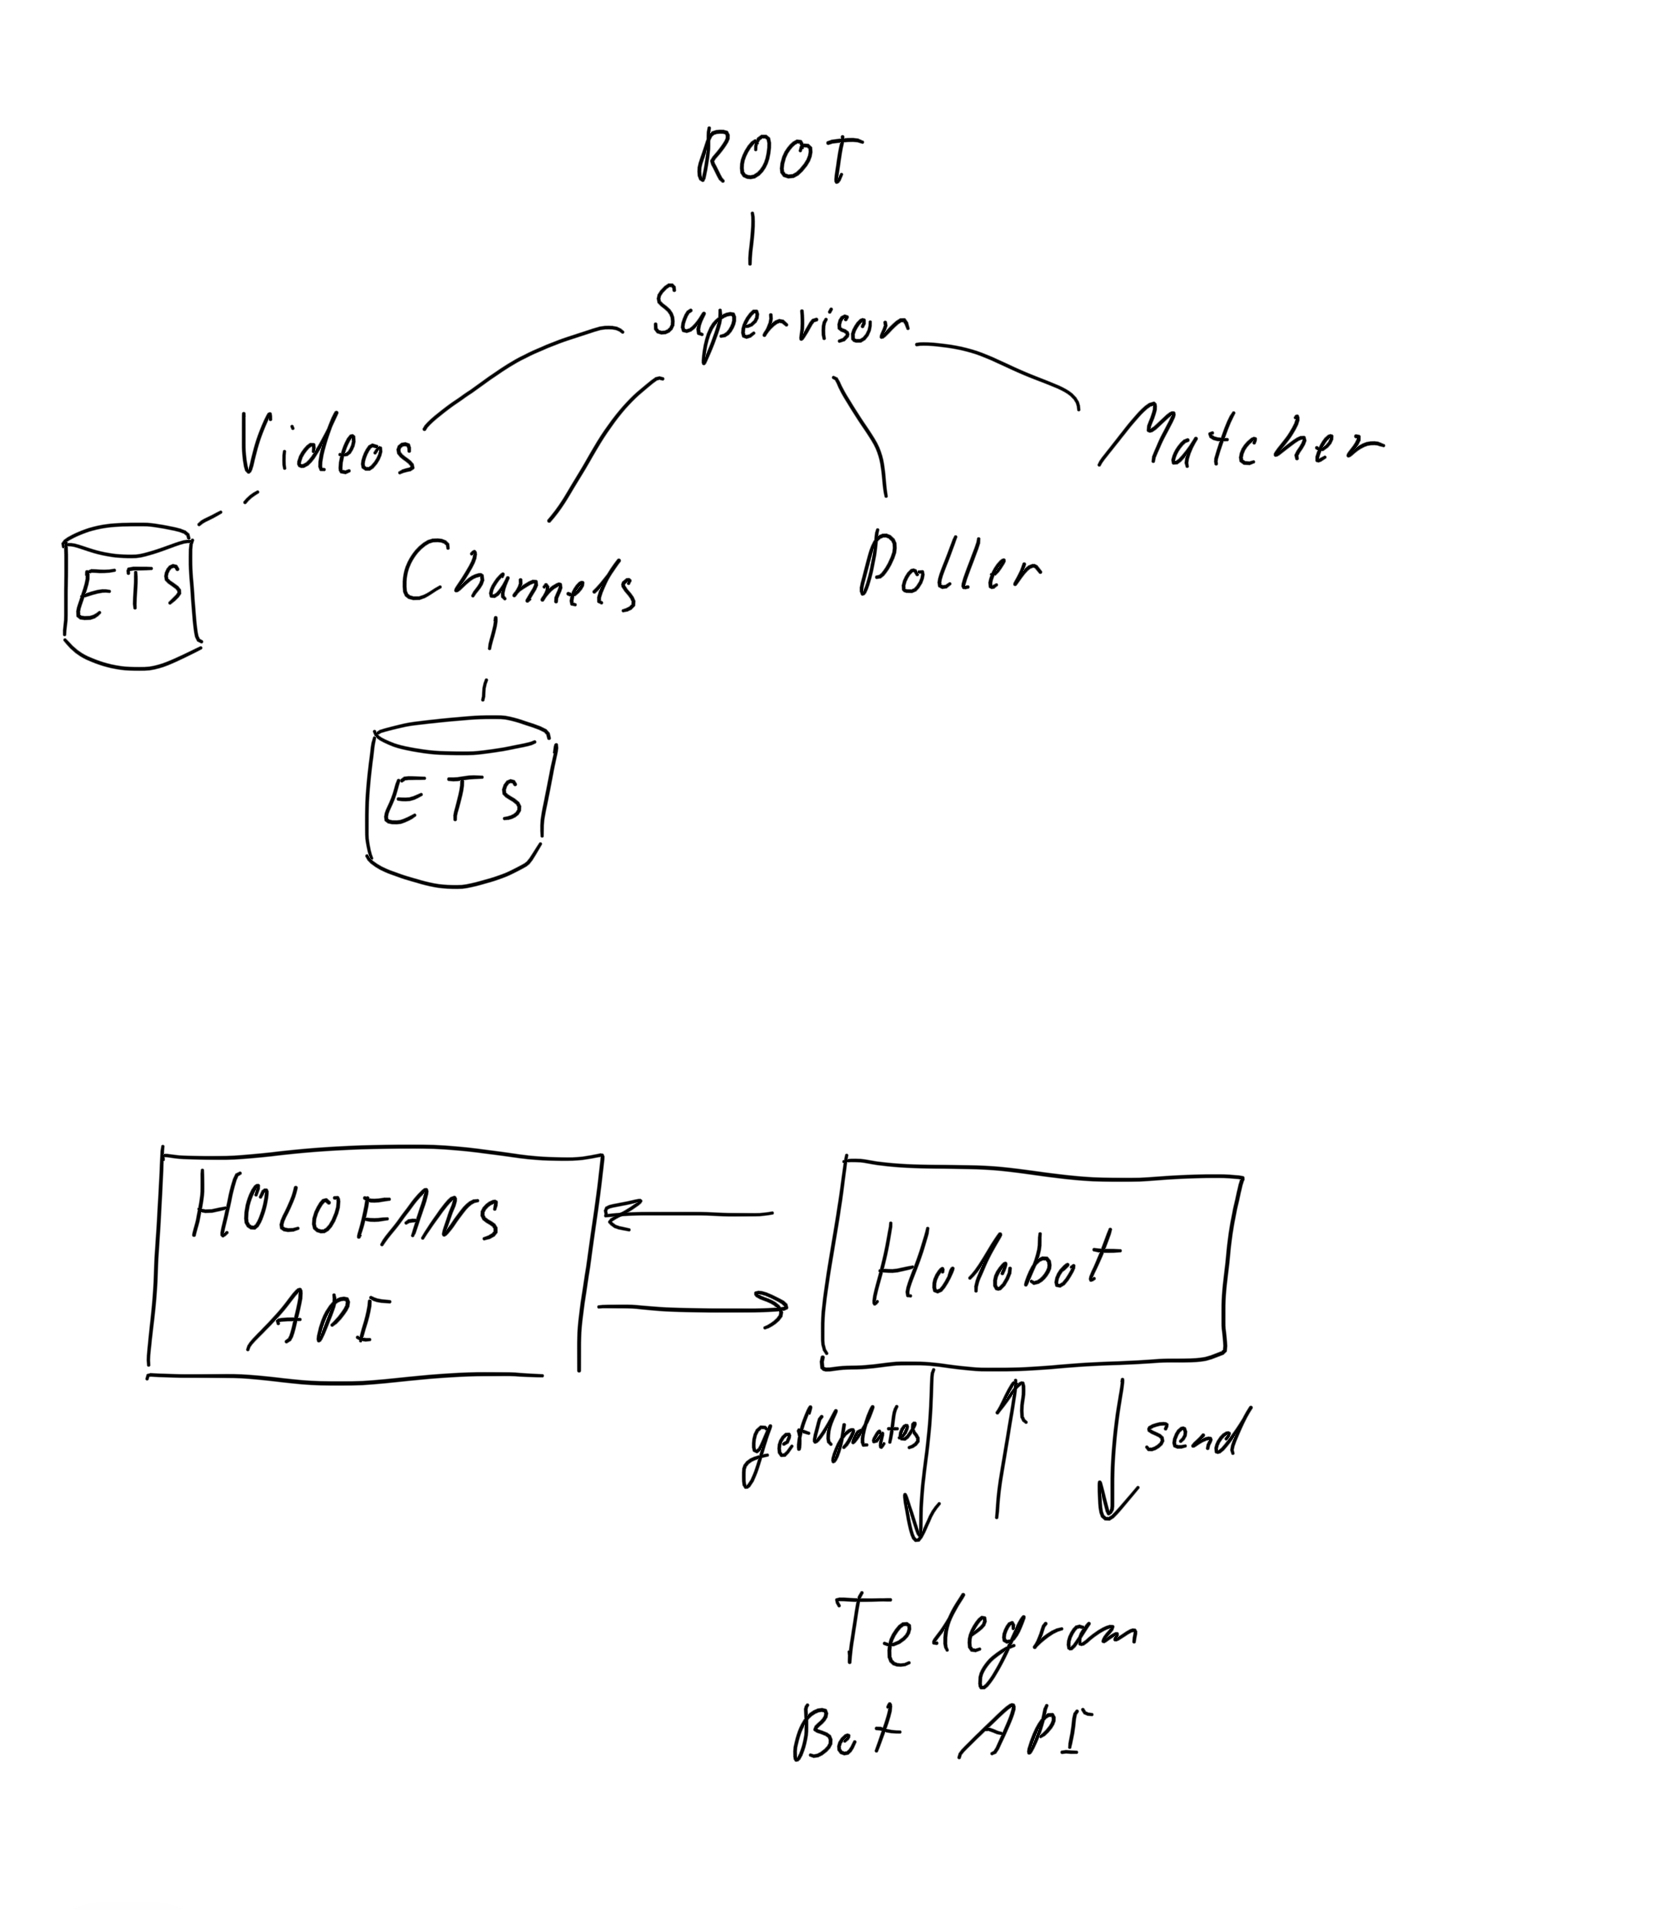 ROOT
Supervisor
Videos
Matcher
ETS
Channels
Poller
ETS
HOLOFANS
API
Holobot
getUpdates
send
Telegram
Bot API